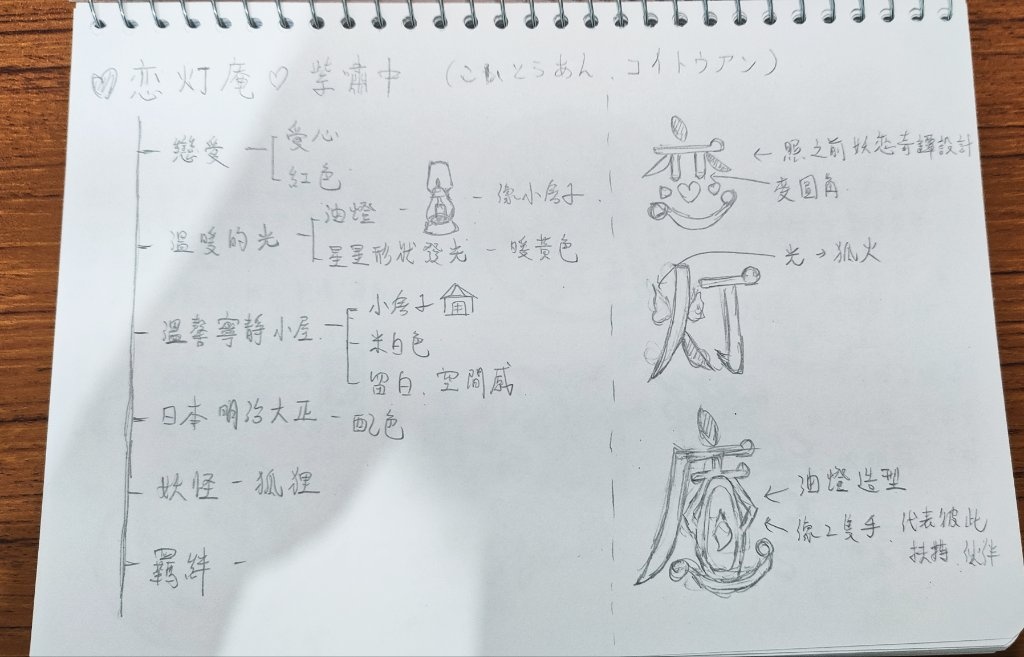 ♡ 恋灯庵 ♡ 紫嘯中 (こいとうあん、コイトウアン)
戀愛
愛心
紅色
溫暖的光
油燈 - - 像小房子
星星形狀發光 - 暖黃色
溫馨寧靜小屋
小房子
米白色
留白、空間感
日本 明治大正 - 配色
妖怪 - 狐狸
羈絆 -
恋
← 照之前妖恋奇譚設計
變圓角
灯
光 → 狐火
庵
← 油燈造型
← 像2隻手、代表彼此
扶持、伙伴